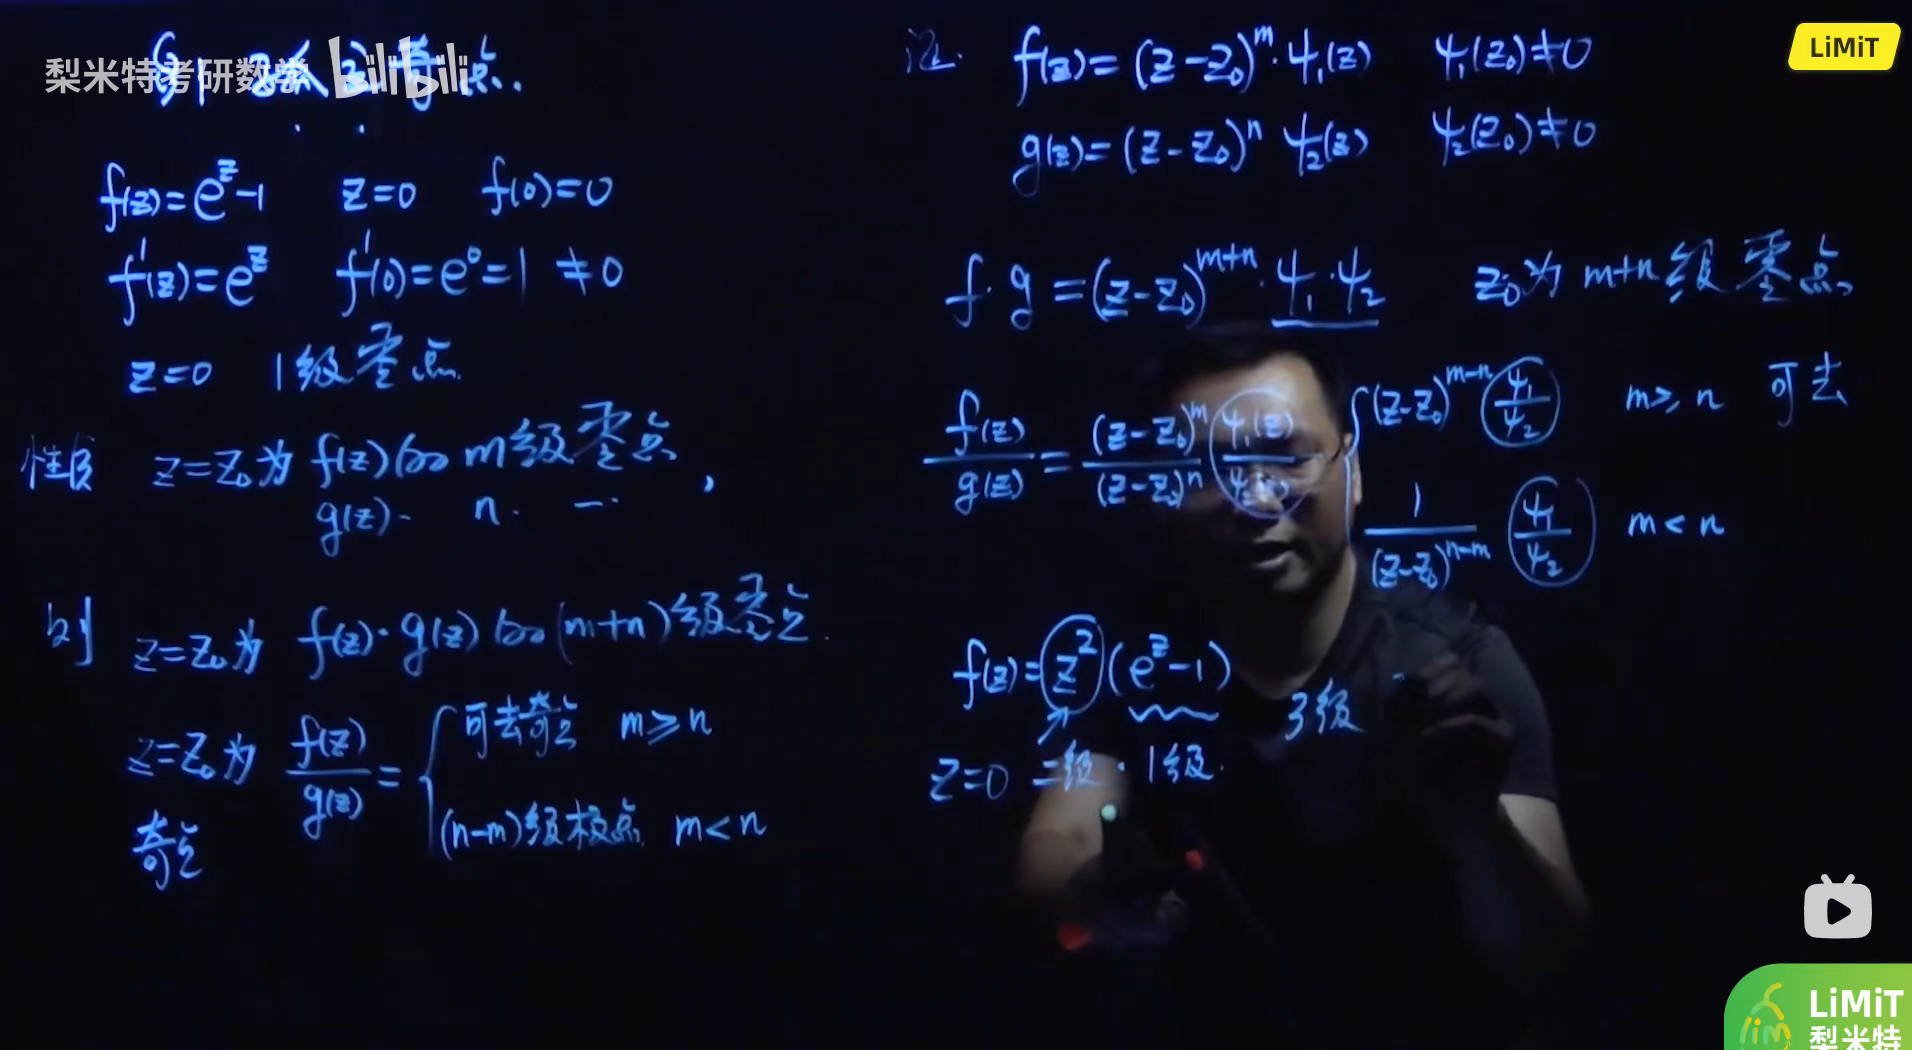 梨米特考研数学 bilibili
点.
f(z)=e^z-1 z=0 f(0)=0
f'(z)=e^z f'(0)=e^0=1 ≠0
z=0 1级零点.
性质 z=z₀为 f(z)的 m级零点
g(z)- n. — ,
则 z=z₀为 f(z)·g(z)的(m+n)级零点.
z=z₀为 f(z)/g(z) = { 可去奇点 m≥n
奇点 (n-m)级极点. m<n
证. f(z)=(z-z₀)^m·ψ₁(z) ψ₁(z₀)≠0
g(z)=(z-z₀)^n ψ₂(z) ψ₂(z₀)≠0
f·g=(z-z₀)^{m+n}·ψ₁·ψ₂ z₀为 m+n级零点
f(z)/g(z) = (z-z₀)^m/(z-z₀)^n ψ₁(z)/ψ₂(z) { (z-z₀)^{m-n} ψ₁/ψ₂ m≥n 可去
1/(z-z₀)^{n-m} ψ₁/ψ₂ m<n
f(z)=z²(e^z-1) 3级
z=0 二级· 1级.
LiMiT
LiMiT
梨米特